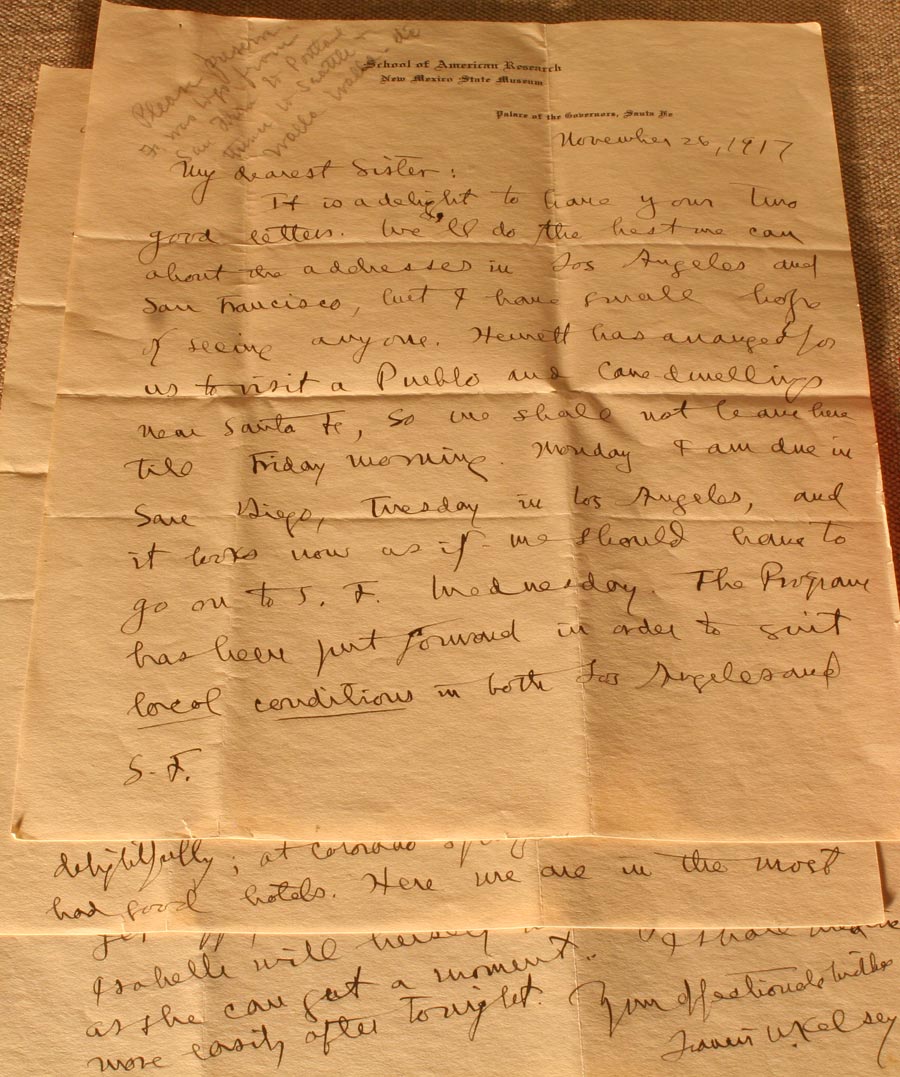 Please preserve
It was kept from
San Juan to Portland
thence to Seattle +
Walla Walla. etc
School of American Research
New Mexico State Museum
Palace of the Governors, Santa Fe
November 26, 1917
My dearest Sister:
It is a delight to have your two
good letters. We'll do the best we can
about the addresses in Los Angeles and
San Francisco, but I have small hope
of seeing anyone. Hewett has arranged for
us to visit a Pueblo and Cave-dwellings
near Santa Fe, so we shall not leave here
till Friday morning. Monday I am due in
San Diego, Tuesday in Los Angeles, and
it looks now as if we should have to
go on to S. F. Wednesday. The Program
has been put forward in order to suit
local conditions in both Los Angeles and
S. F.
delightfully; at Colorado Springs
had good hotels. Here we are in the most
Isabelle will herself I shall
as she can get a moment.
more easily after tonight.
Your affectionate brother
Francis W. Kelsey